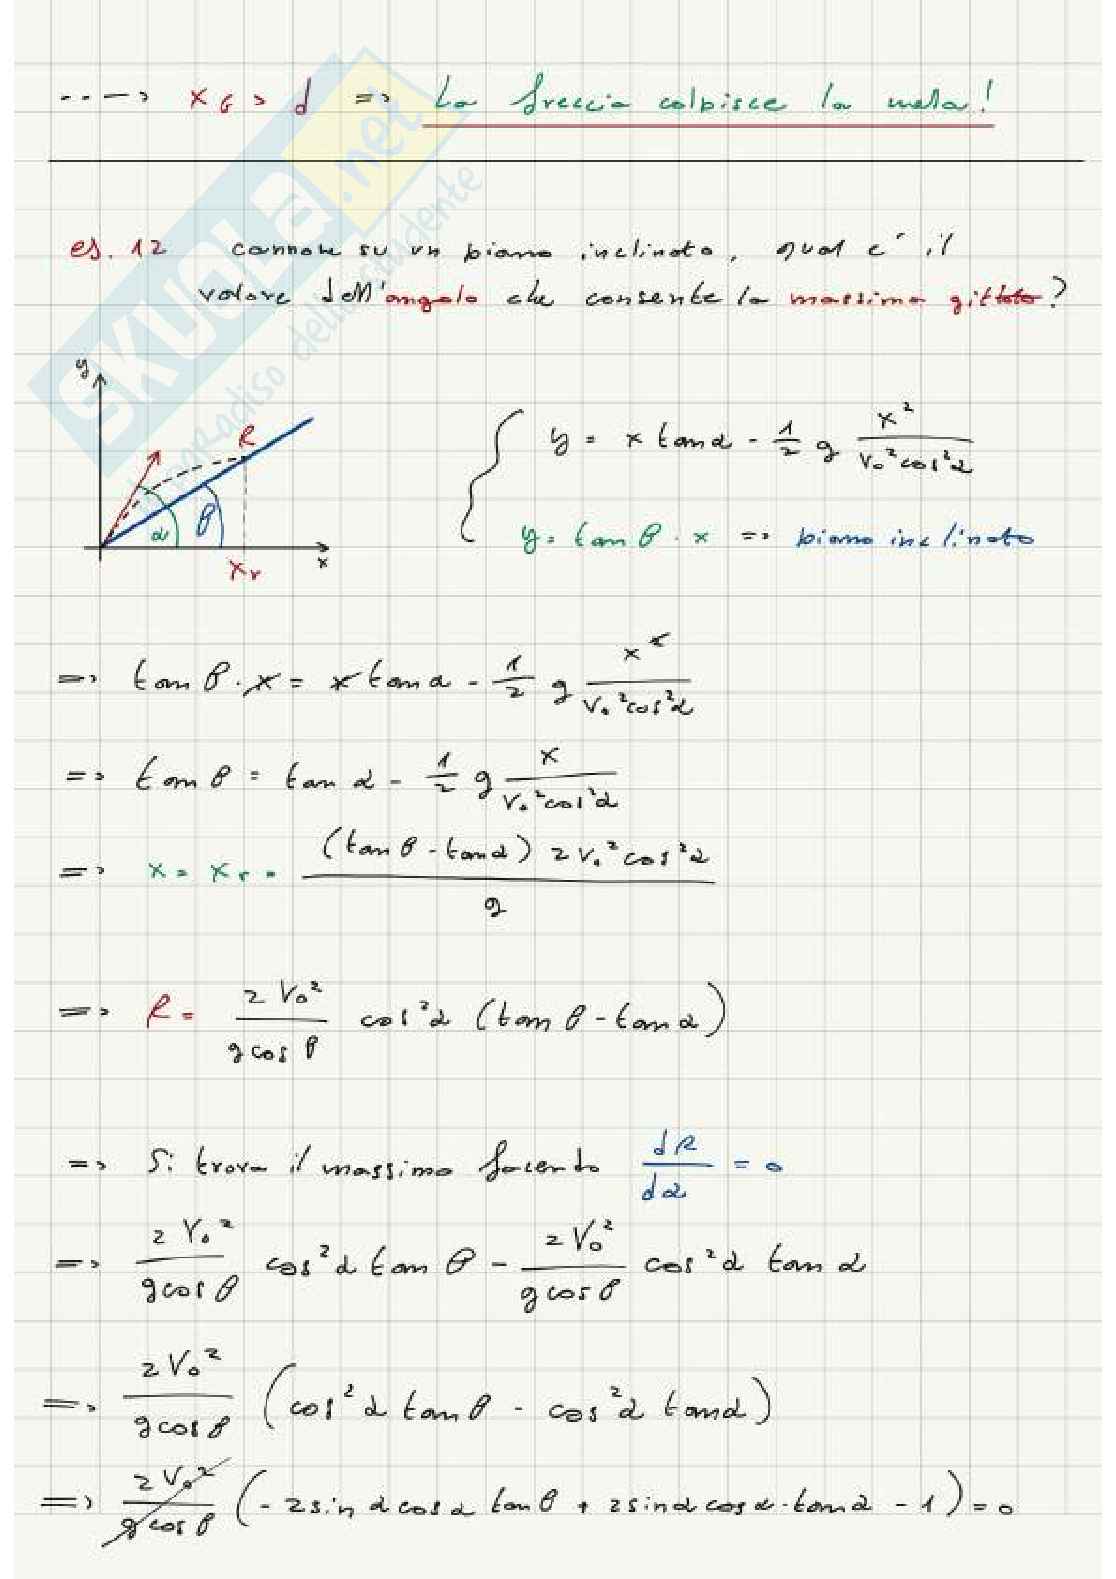 ---> x_G > d => La freccia colpisce la meta!
es. 12 cannone su un piano inclinato, qual è il
valore dell'angolo che consente la massima gittata?
y
R
α θ
x_r x
y = x tanα - 1/2 g x²/(V₀²cos²α)
y = tanθ · x => piano inclinato
=> tanθ · x = x tanα - 1/2 g x²/(V₀²cos²α)
=> tanθ = tanα - 1/2 g x/(V₀²cos²α)
=> x = x_r = (tanθ - tanα) 2V₀²cos²α / g
=> R = 2V₀²/(g cosθ) cos²α (tanθ - tanα)
=> Si trova il massimo facendo dR/dα = 0
=> 2V₀²/(g cosθ) cos²α tanθ - 2V₀²/(g cosθ) cos²α tanα
=> 2V₀²/(g cosθ) (cos²α tanθ - cos²α tanα)
=> 2V₀²/(g cosθ) (-2sinα cosα tanθ + 2sinα cosα · tanα - 1) = 0
SKUOLA.net
paradiso dello studente